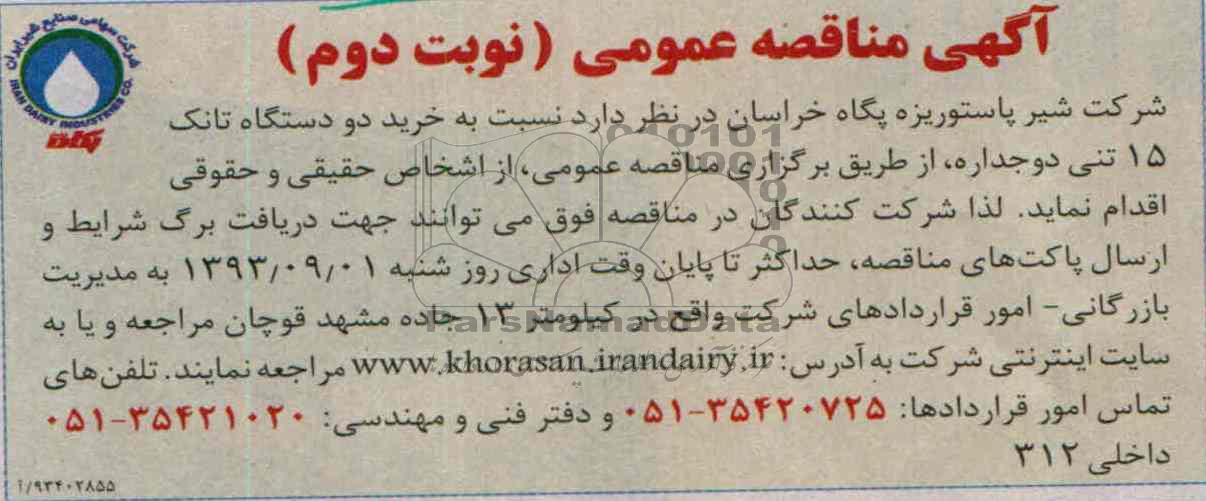 آگهی مناقصه عمومی (نوبت دوم)
شرکت سهامی صنایع شیر ایران
IRAN DAIRY INDUSTRIES CO.
پگاه
شرکت شیر پاستوریزه پگاه خراسان در نظر دارد نسبت به خرید دو دستگاه تانک
۱۵ تنی دوجداره، از طریق برگزاری مناقصه عمومی، از اشخاص حقیقی و حقوقی
اقدام نماید. لذا شرکت کنندگان در مناقصه فوق می توانند جهت دریافت برگ شرایط و
ارسال پاکت‌های مناقصه، حداکثر تا پایان وقت اداری روز شنبه ۱۳۹۳/۰۹/۰۱ به مدیریت
بازرگانی- امور قراردادهای شرکت واقع در کیلومتر ۱۳ جاده مشهد قوچان مراجعه و یا به
سایت اینترنتی شرکت به آدرس: www.khorasan.irandairy.ir مراجعه نمایند. تلفن‌های
تماس امور قراردادها: ۳۵۴۲۰۷۲۵-۰۵۱ و دفتر فنی و مهندسی: ۳۵۴۲۱۰۲۰-۰۵۱
داخلی ۳۱۲
۹۳۴۰۲۸۵۵/آ
ParsNamadData